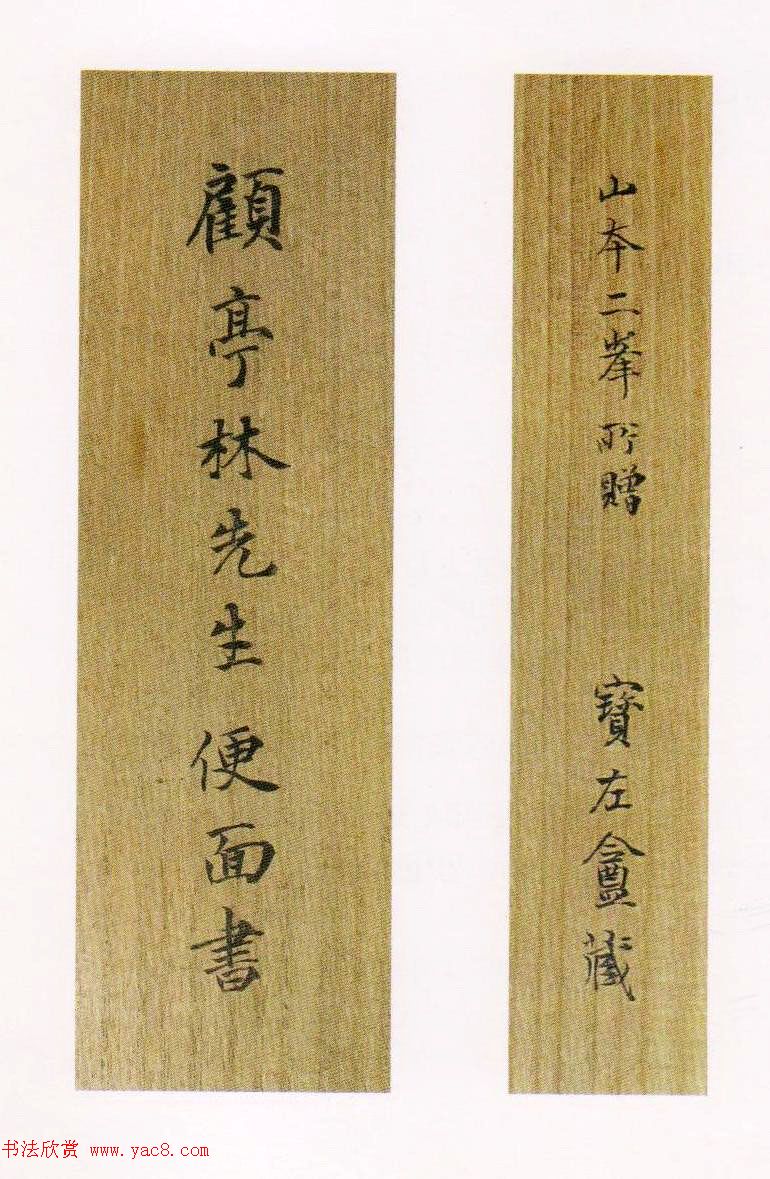 山本二峯所贈 寶左盦藏
顧亭林先生便面書
书法欣赏 www.yac8.com